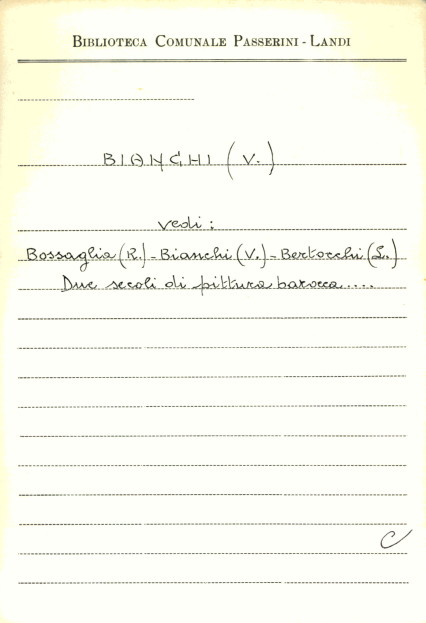 BIBLIOTECA COMUNALE PASSERINI - LANDI
BIANCHI (V.)
vedi :
Bossaglia (R.) - Bianchi (V.) - Bertocchi (L.)
Due secoli di pittura barocca....
C